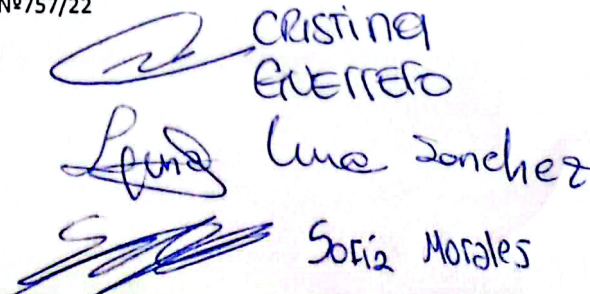 Nº757/22
CRISTINA
GUERRERO
Luna Sanchez
Sofia Morales